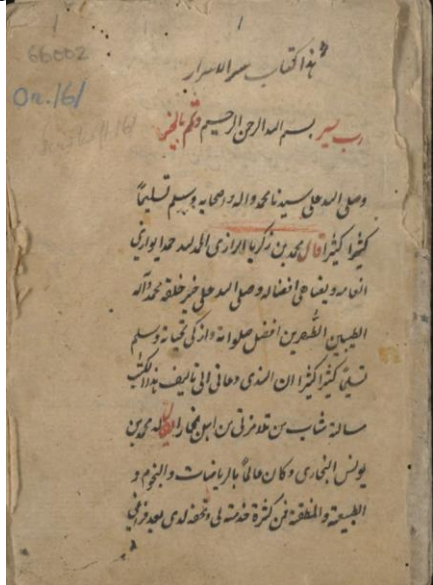 66002
Or. 161
هذا كتاب سر الاسرار
رب يسر بسم الله الرحمن الرحيم وتمم بالخير
وصلى الله على سيدنا محمد واله واصحابه وسلم تسليمًا
كثيرا كثيرا قال محمد بن زكريا الرازى الحمد لله حمدا يوازي
انعامه ويضاهي افضاله وصلى الله على خير خلقه محمد وآله
الطيبين الطهرين افضل صلواته وازكى تحياته وسلم
تسليمًا كثيرًا كثيرًا ان الذى دعانى الى تاليف هذا الكتب
مسالة شاب من تلامذتى من اهل بخارا يقال له محمد بن
يونس البخارى وكان عالماً بالرياضات والنجوم و
الطبيعة والمنطقة فمن كثرة خدمته لى وتحفه لدى بعد فراغي